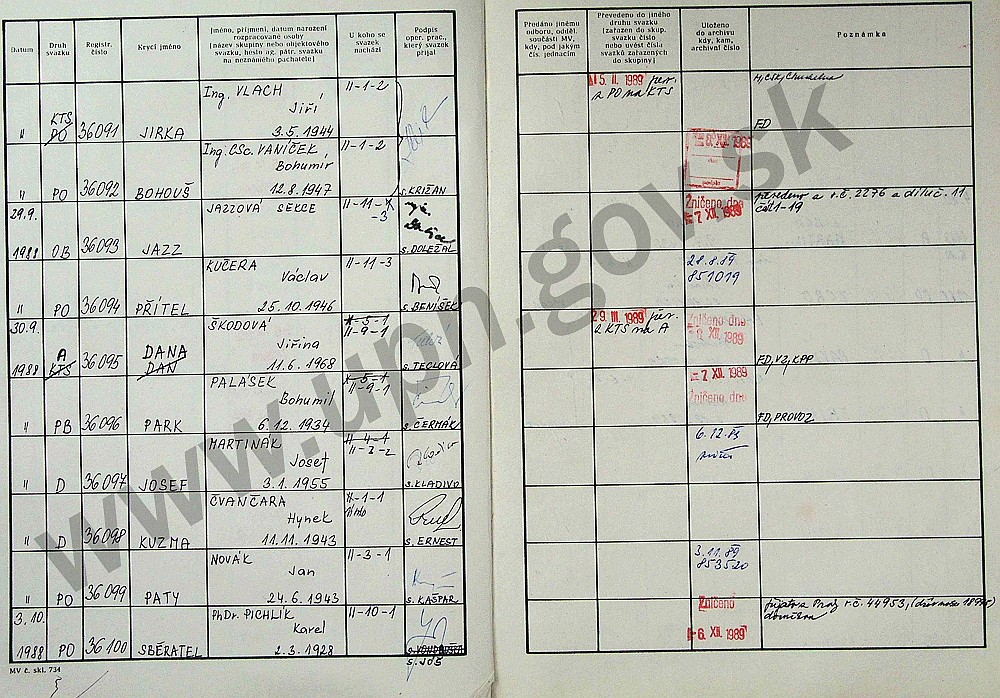 Datum
Druh
svazku
Registr.
číslo
Krycí jméno
Jméno, příjmení, datum narození
rozpracované osoby
(název skupiny nebo objektového
svazku, heslo ag. pátr. svazku
na neznámého pachatele)
U koho se
svazek
nachází
Podpis
oper. prac.,
který svazek
přijal
Předáno jinému
odboru, odděl.
součásti MV,
kdy, pod jakým
čís. jednacím
Převedeno do jiného
druhu svazku
(zařazen do skup.
svazku číslo
nebo uvést čísla
svazků zařazených
do skupiny)
Uloženo
do archivu
kdy, kam,
archivní číslo
Poznámka
" KTS PO 36091 JIRKA
Ing. VLACH
Jiří
3.5. 1944
II-1-2
15. II. 1989
z PO na KTS
FD
" PO 36092 BOHOUŠ
Ing. CSc. VANÍČEK
Bohumír
12.8. 1947
II-1-2
s. KRIŽAN
XII. 1989
29.9.
1988 OB 36093 JAZZ
JAZZOVÁ SEKCE
II-11-
-3
s. DOLEŽAL
Zničeno dne
- 7 XII. 1989
" PO 36094 PŘÍTEL
KUČERA
Václav
25.10.1946
II-11-3
s. BENÍŠEK
28.8.89
851019
30.9.
1988 A KTS 36095 DANA
DAN
ŠKODOVÁ
Jiřina
11.6.1968
II-5-1
II-9-1
s. TECLOVÁ
29. III. 1989
z KTS na A
Zničeno dne
XII. 1989
FD, VZ, KPP
" PB 36096 PARK
PALÁSEK
Bohumil
6.12.1934
II-5-1
II-9-1
s. ČERMÁK
- 7 XII. 1989
Zničeno dne
FD, PROVOZ
" D 36097 JOSEF
MARTINÁK
Josef
3.1.1955
II-4-1
II-2-2
s. KLADIVO
6.12.
" D 36098 KUZMA
ČVANČARA
Hynek
11.11.1943
II-1-1
s. ERNEST
" PO 36099 PATY
NOVÁK
Jan
24.6.1943
II-3-1
s. KAŠPAR
3.11.89
853520
3.10.
1988 PO 36100 SBĚRATEL
PhDr. PICHLÍK
Karel
2.3.1928
II-10-1
s. JOŠ
Zničeno
- 6. XII. 1989
MV č. skl. 734
www.upn.gov.sk